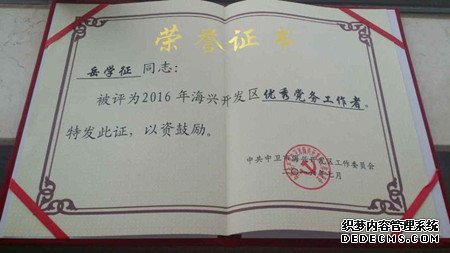 荣誉证书
岳学征 同志：
被评为2016年海兴开发区优秀党务工作者。
特发此证，以资鼓励。
中共中卫市海兴开发区工作委员会
二〇一六年七月
织梦内容管理系统
DEDECMS.COM